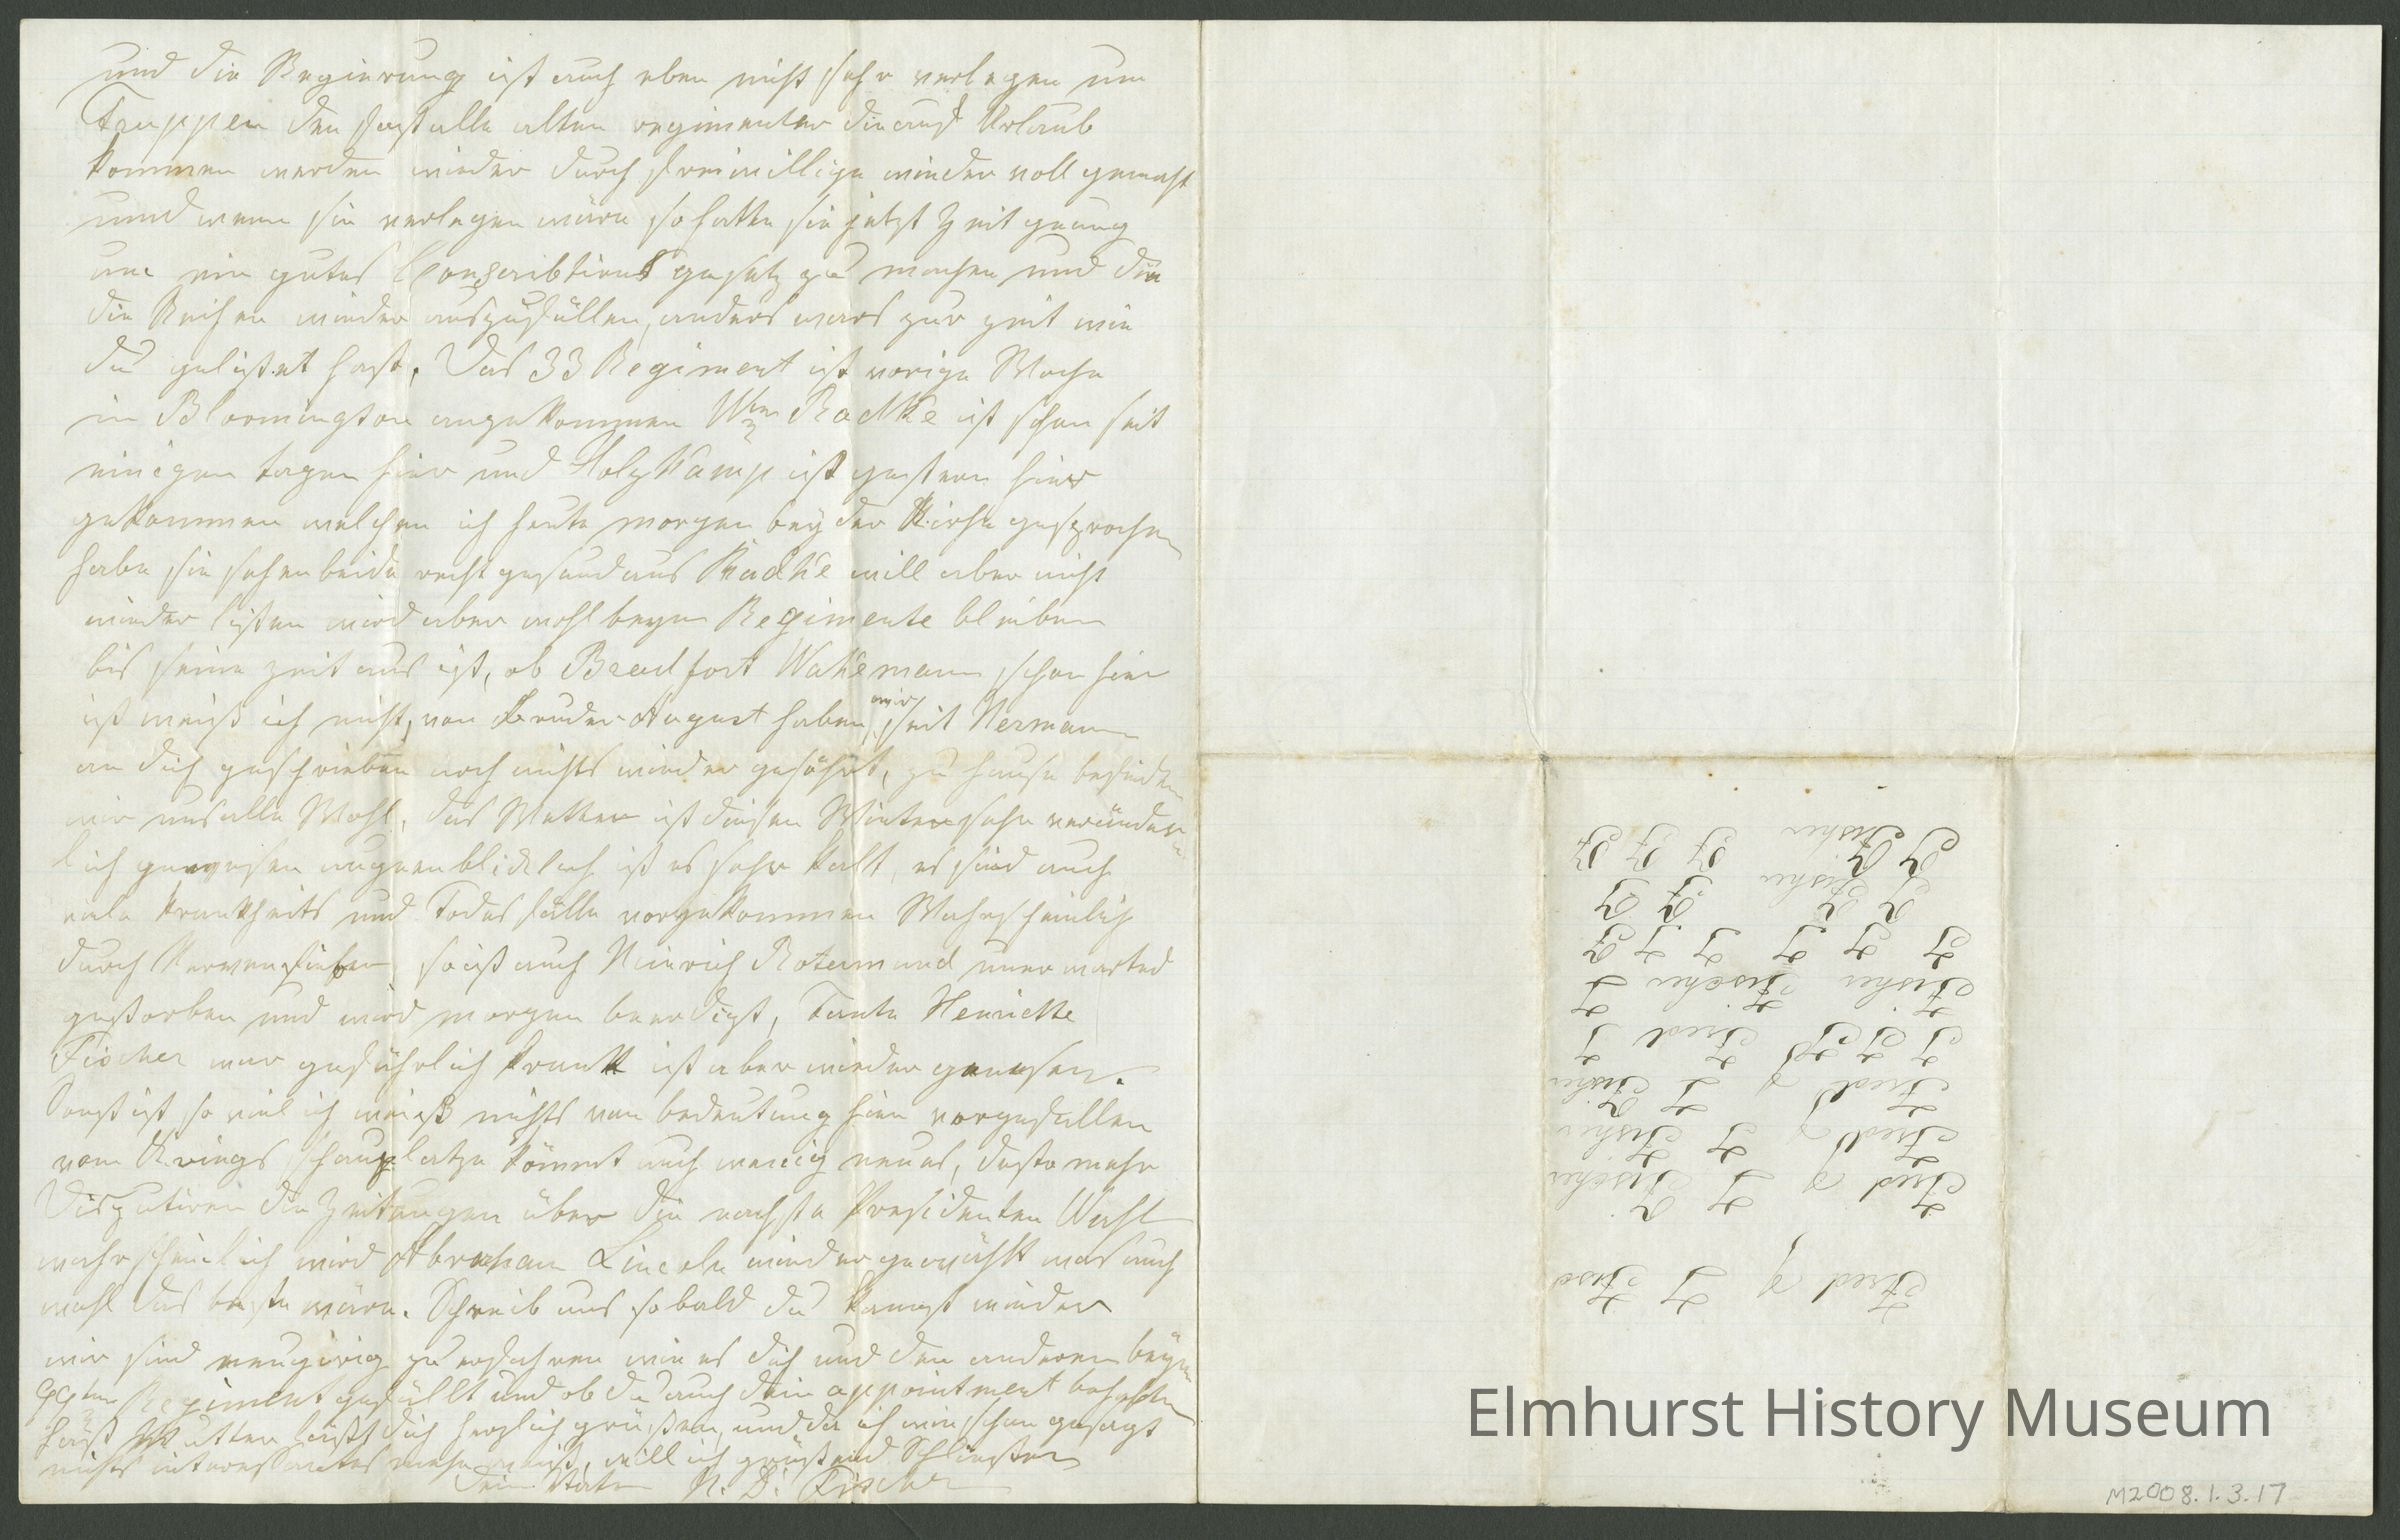 und die Regierung ist auch eben nicht sehr verlegen um
Truppen den fast alle alten regimenter die auf Urlaub
kommen werden wieder durch freiwillige wieder voll gemacht
und wenn sie verlegen wäre so hatte sie jetzt Zeit genug
um ein gutes Conscribtions gesetz zu machen und die
die Reihen wieder auszufüllen, anders wars zur zeit wie
du gelistet hast. Das 33 Regiment ist vorige Woche
in Bloomington angekommen Wm Radke ist schon seit
einigen tagen hier und Holzkamp ist gestern hier
gekommen welchen ich heute morgen bey der Kirche gesprochen
habe sie sehen beide recht gesund aus Radke will aber nicht
wieder listen wird aber wohl beym Regimente bleiben
bis seine zeit aus ist, ob Bradfort Wakeman schon hier
ist weiß ich nicht, von Bruder August haben wir seit Herman
an dich geschrieben noch nichts wieder gehöhrt, zu hause befinden
wir uns alle Wohl, das Wetter ist diesen Winter sehr veränder
lich gewesen augenblicklich ist es sehr kalt, es sind auch
viele krankheits und Todes fälle vorgekommen Wahrscheinlich
durch Nervenfieber, so ist auch Hinrich Rotermund unerwarted
gestorben und wird morgen beerdigt, Tante Henriette
Fischer war gefährlich krank ist aber wieder genesen.
Sonst ist so viel ich weiß nichts von bedeutung hier vorgefallen
vom Kriegs schauplatze kömmt auch wenig neues, desto mehr
disputiren die Zeitungen über die nachste Presidenten Wahl
wahrscheinlich wird Abraham Lincoln wieder gewählt was auch
wohl das beste wäre. Schreib uns so bald du kanst wieder
wir sind neugirig zu erfahren wie es dich und den anderen beym
Regiment gefällt und ob du auch dein appointment behalten
hast Mutter läßt dich herzlich grüßen, und da ich wie schon gesagt
nichts interessantes mehr weiß, will ich grüßend Schließen
Dein Vater H. D. Fischer
Fred J F Fisc
Fred J F Fischer
Fred J F Fisher
Fred J F Fisher
F F F Fred F
Fisher Fischer F
F F F F F F
F F Fisher F F
F F Fisher F F F
Elmhurst History Museum
M2008.1.3.17